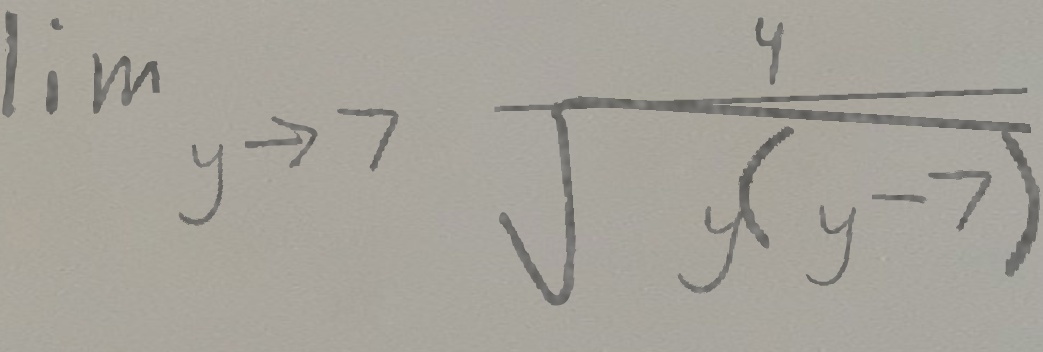 lim y→7 4/√(y(y-7))